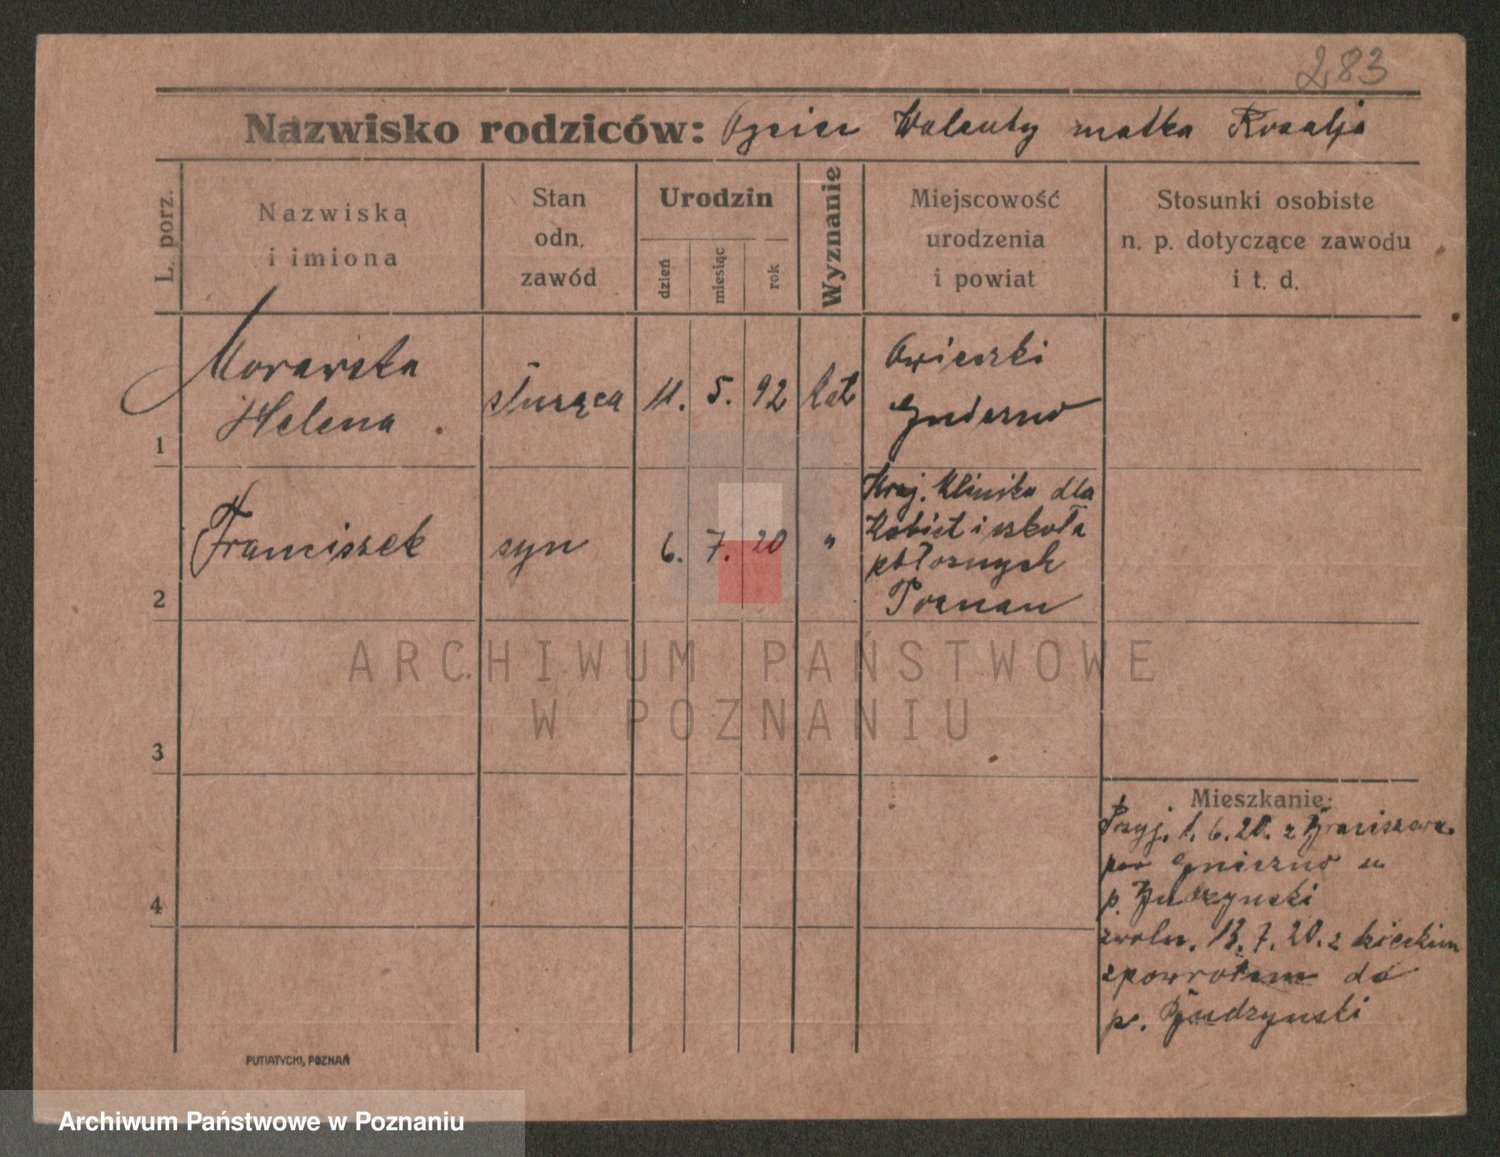 283
Nazwisko rodziców: Ojciec Walenty matka Rozalja
L. porz.
Nazwiska
i imiona
Stan
odn.
zawód
Urodzin
dzień
miesiąc
rok
Wyznanie
Miejscowość
urodzenia
i powiat
Stosunki osobiste
n. p. dotyczące zawodu
i t. d.
1
Morawska
Helena
służąca
11. 5. 92
kat
Owieczki
Gniezno
2
Franciszek
syn
6. 7. 20
"
Kraj. Klinika dla
Kobiet i szkoła
położnych
Poznań
3
4
Mieszkanie:
Przyj. 1. 6. 20. z
pow Gniezno u
p. Budzynski
zwoln. 13. 7. 20. z dzieckiem
zpowrotem do
p. Budzynski
PUTIATYCKI, POZNAŃ
ARCHIWUM PAŃSTWOWE
W POZNANIU
Archiwum Państwowe w Poznaniu